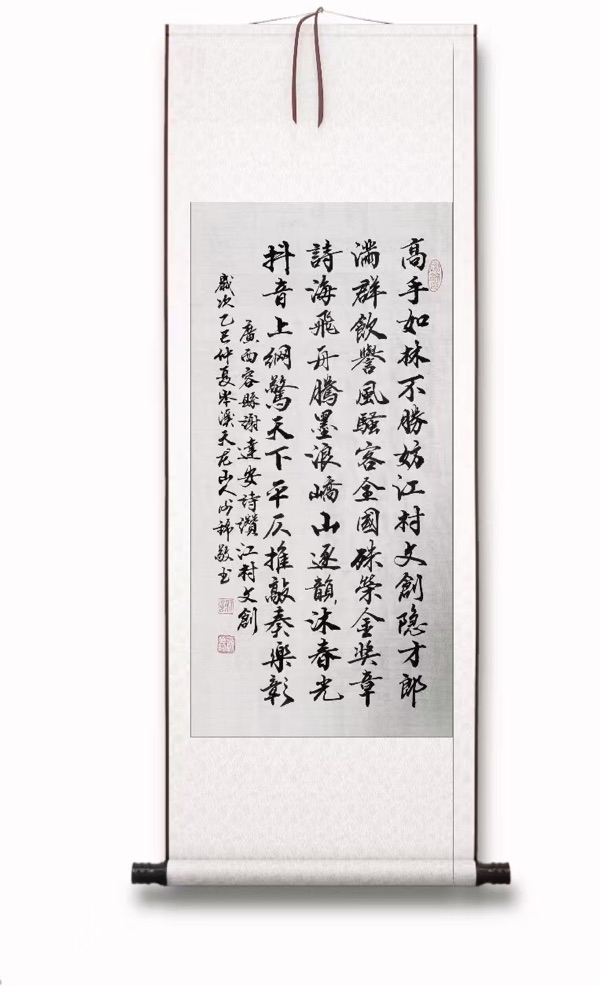 高手如林不勝妨江村文創隐才郎
滿群飲譽風騷客全國殊榮金奖章
詩海飛舟騰墨浪嶠山逐韻沐春光
抖音上網驚天下平仄推敲奏樂彰
廣西容縣謝達安詩讚江村文創
歲次乙巳仲夏岑溪天龙山人 錦敬书